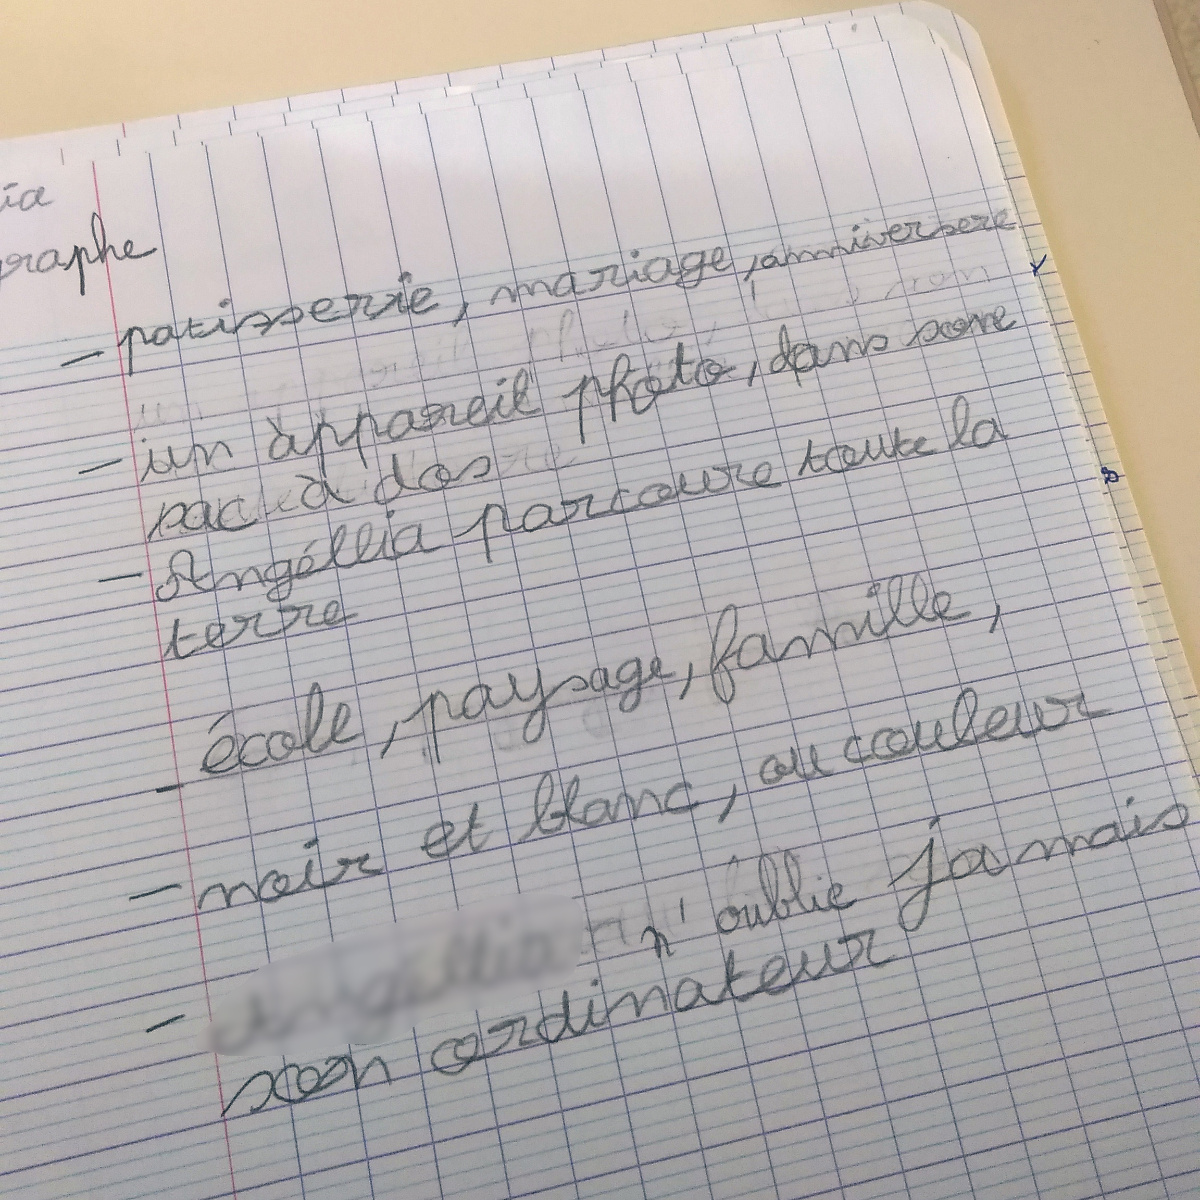 ia
graphe
- patisserie, mariage, anniversere
- un appareil photo, dans sone
sac à dos
- Angéllia parcoure toute la
terre
- école, paysage, famille,
- noir et blanc, ou couleur
- n'oublie jamais
son ordinateur